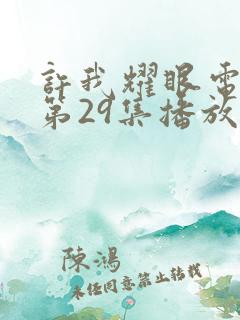 許我耀眼電
第29集播放
陳鴻
未任同意禁止转载